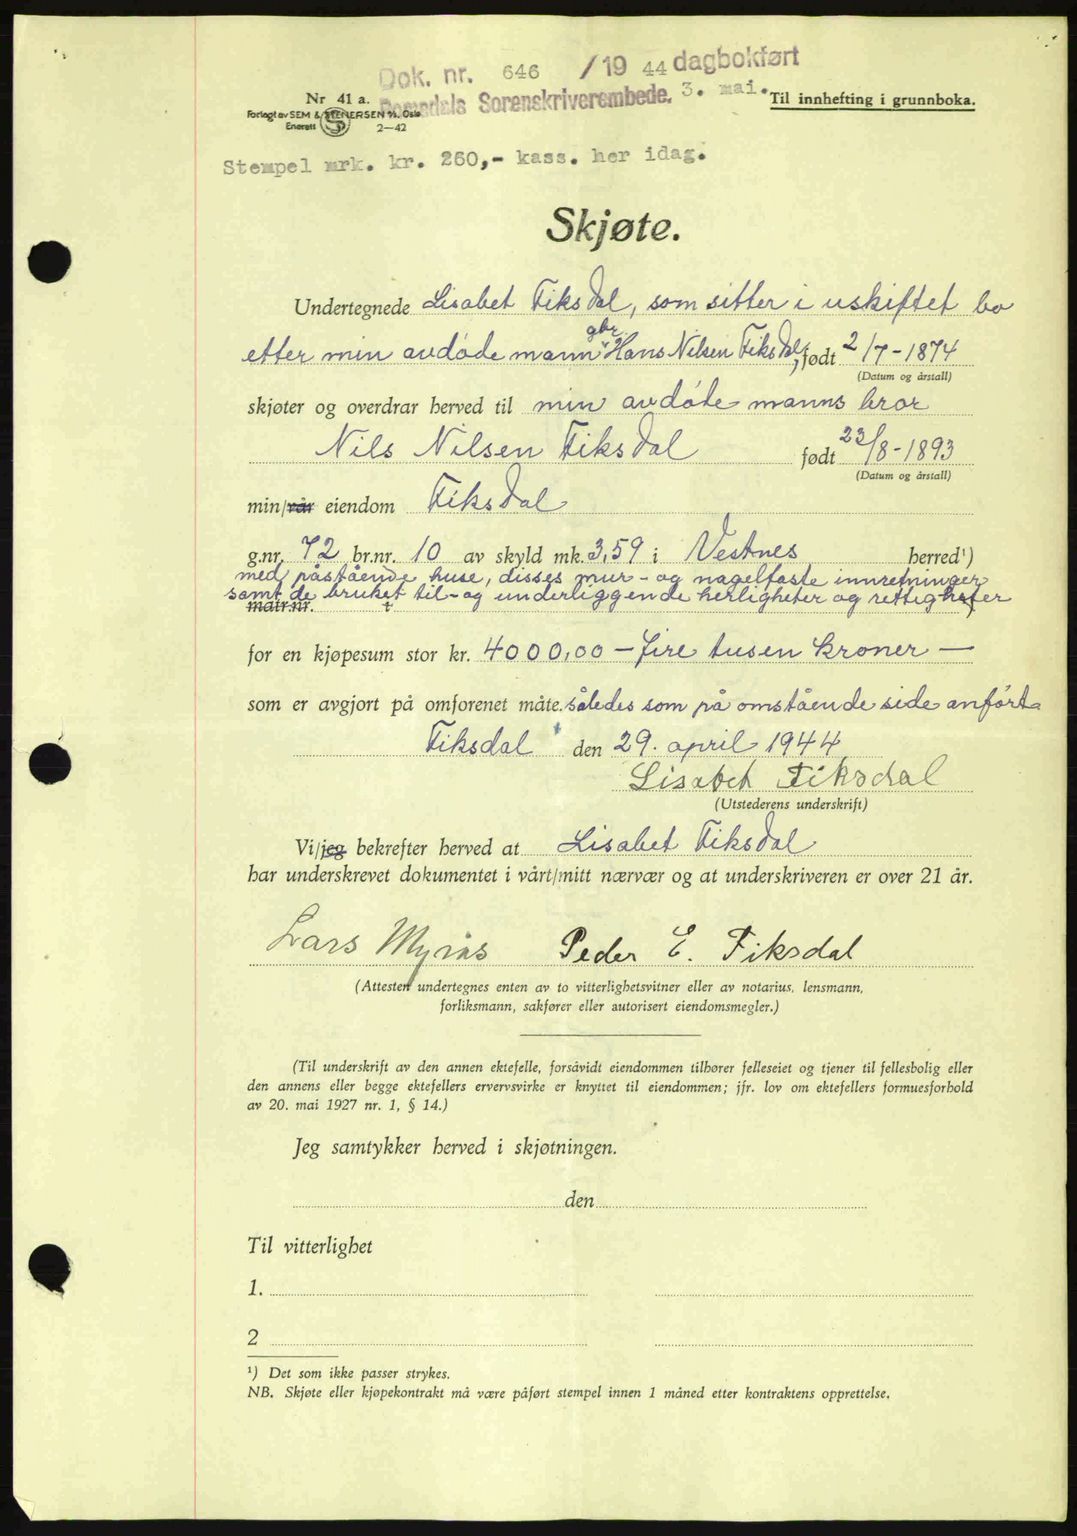 Dok. nr. 646 / 19 44 dagbokført
Romsdals Sorenskriverembede. 3. mai.
Nr 41 a.
Til innhefting i grunnboka.
Forlagt av SEM & STENERSEN A/S, Oslo
Enerett S 2—42
Stempel mrk. kr. 260,- kass. her idag.
Skjøte.
Undertegnede Lisabet Fiksdal, som sitter i uskiftet bo
etter min avdøde mann gbr. Hans Nilsen Fiksdal, født 2/7-1874
(Datum og årstall)
skjøter og overdrar herved til min avdøde manns bror
Nils Nilsen Fiksdal født 23/8-1893
(Datum og årstall)
min/vår eiendom Fiksdal
g.nr. 72 br.nr. 10 av skyld mk. 3,59 i Vestnes herred¹)
med påstående huse, disses mur- og nagelfaste innretninger
samt de bruket til- og underliggende herligheter og rettigheter
matr.nr. i
for en kjøpesum stor kr. 4000,00 — fire tusen kroner —
som er avgjort på omforenet måte. således som på omstående side anført.
Fiksdal den 29. april 1944
Lisabet Fiksdal
(Utstederens underskrift)
Vi/jeg bekrefter herved at Lisabet Fiksdal
har underskrevet dokumentet i vårt/mitt nærvær og at underskriveren er over 21 år.
Lars Myrås Peder E. Fiksdal
(Attesten undertegnes enten av to vitterlighetsvitner eller av notarius, lensmann,
forliksmann, sakfører eller autorisert eiendomsmegler.)
(Til underskrift av den annen ektefelle, forsåvidt eiendommen tilhører felleseiet og tjener til fellesbolig eller
den annens eller begge ektefellers ervervsvirke er knyttet til eiendommen; jfr. lov om ektefellers formuesforhold
av 20. mai 1927 nr. 1, § 14.)
Jeg samtykker herved i skjøtningen.
den
Til vitterlighet
1.
2
¹) Det som ikke passer strykes.
NB. Skjøte eller kjøpekontrakt må være påført stempel innen 1 måned etter kontraktens opprettelse.